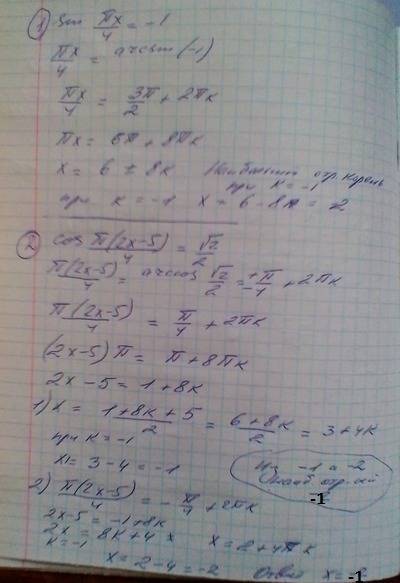 ① sin πx/4 = -1
πx/4 = arcsin(-1)
πx/4 = 3π/2 + 2πк
πx = 6π + 8πк
x = 6 + 8к Наибольший отр. корень
при к = -1
при к = -1 x = 6 - 8 = 2
② cos π(2x-5)/4 = √2/2
π(2x-5)/4 = arccos √2/2 = ±π/4 + 2πк
π(2x-5)/4 = π/4 + 2πк
(2x-5)π = π + 8πк
2x - 5 = 1 + 8к
1) x = (1+8к+5)/2 = (6+8к)/2 = 3 + 4к
при к = -1
x1 = 3 - 4 = -1
Из -1 и -2
наиб отр-ый
-1
2) π(2x-5)/4 = -π/4 + 2πк
2x-5 = -1+8к
2x = 8к + 4 x = 2+4πк
к = -1
x = 2-4 = -2 Ответ x = -1